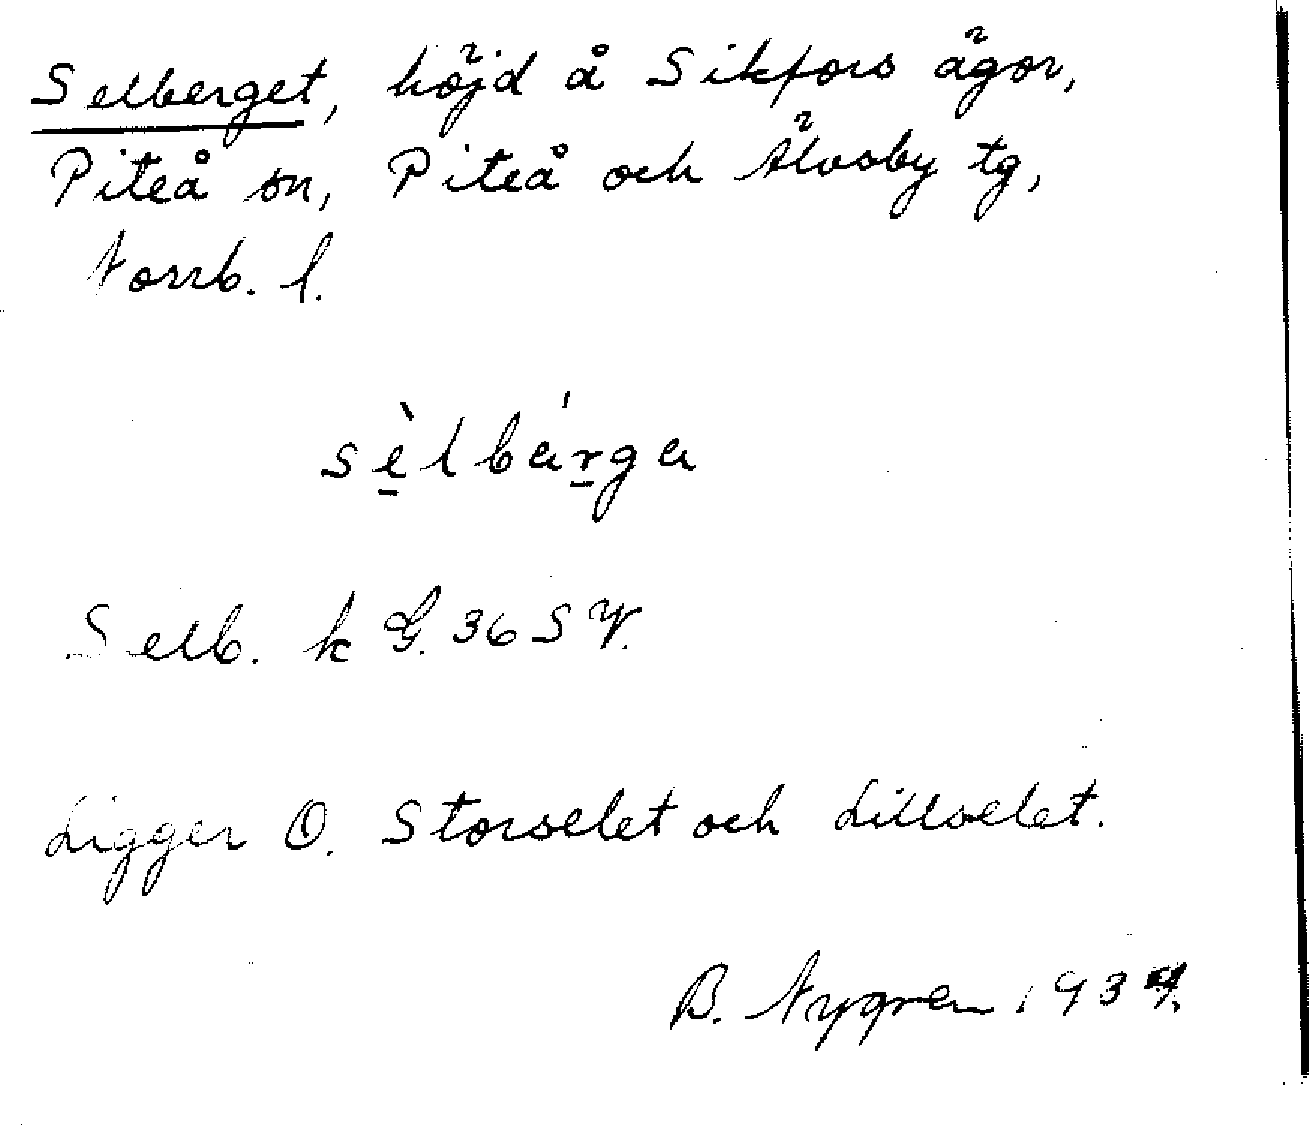 Selberget, höjd å Sikfors ägor,
Piteå sn, Piteå och Älvsby tg,
Norrb. l.
sèlbárga
Selb. k G. 36 S V.
Ligger O. Storselet och Lillselet.
B. Nygren